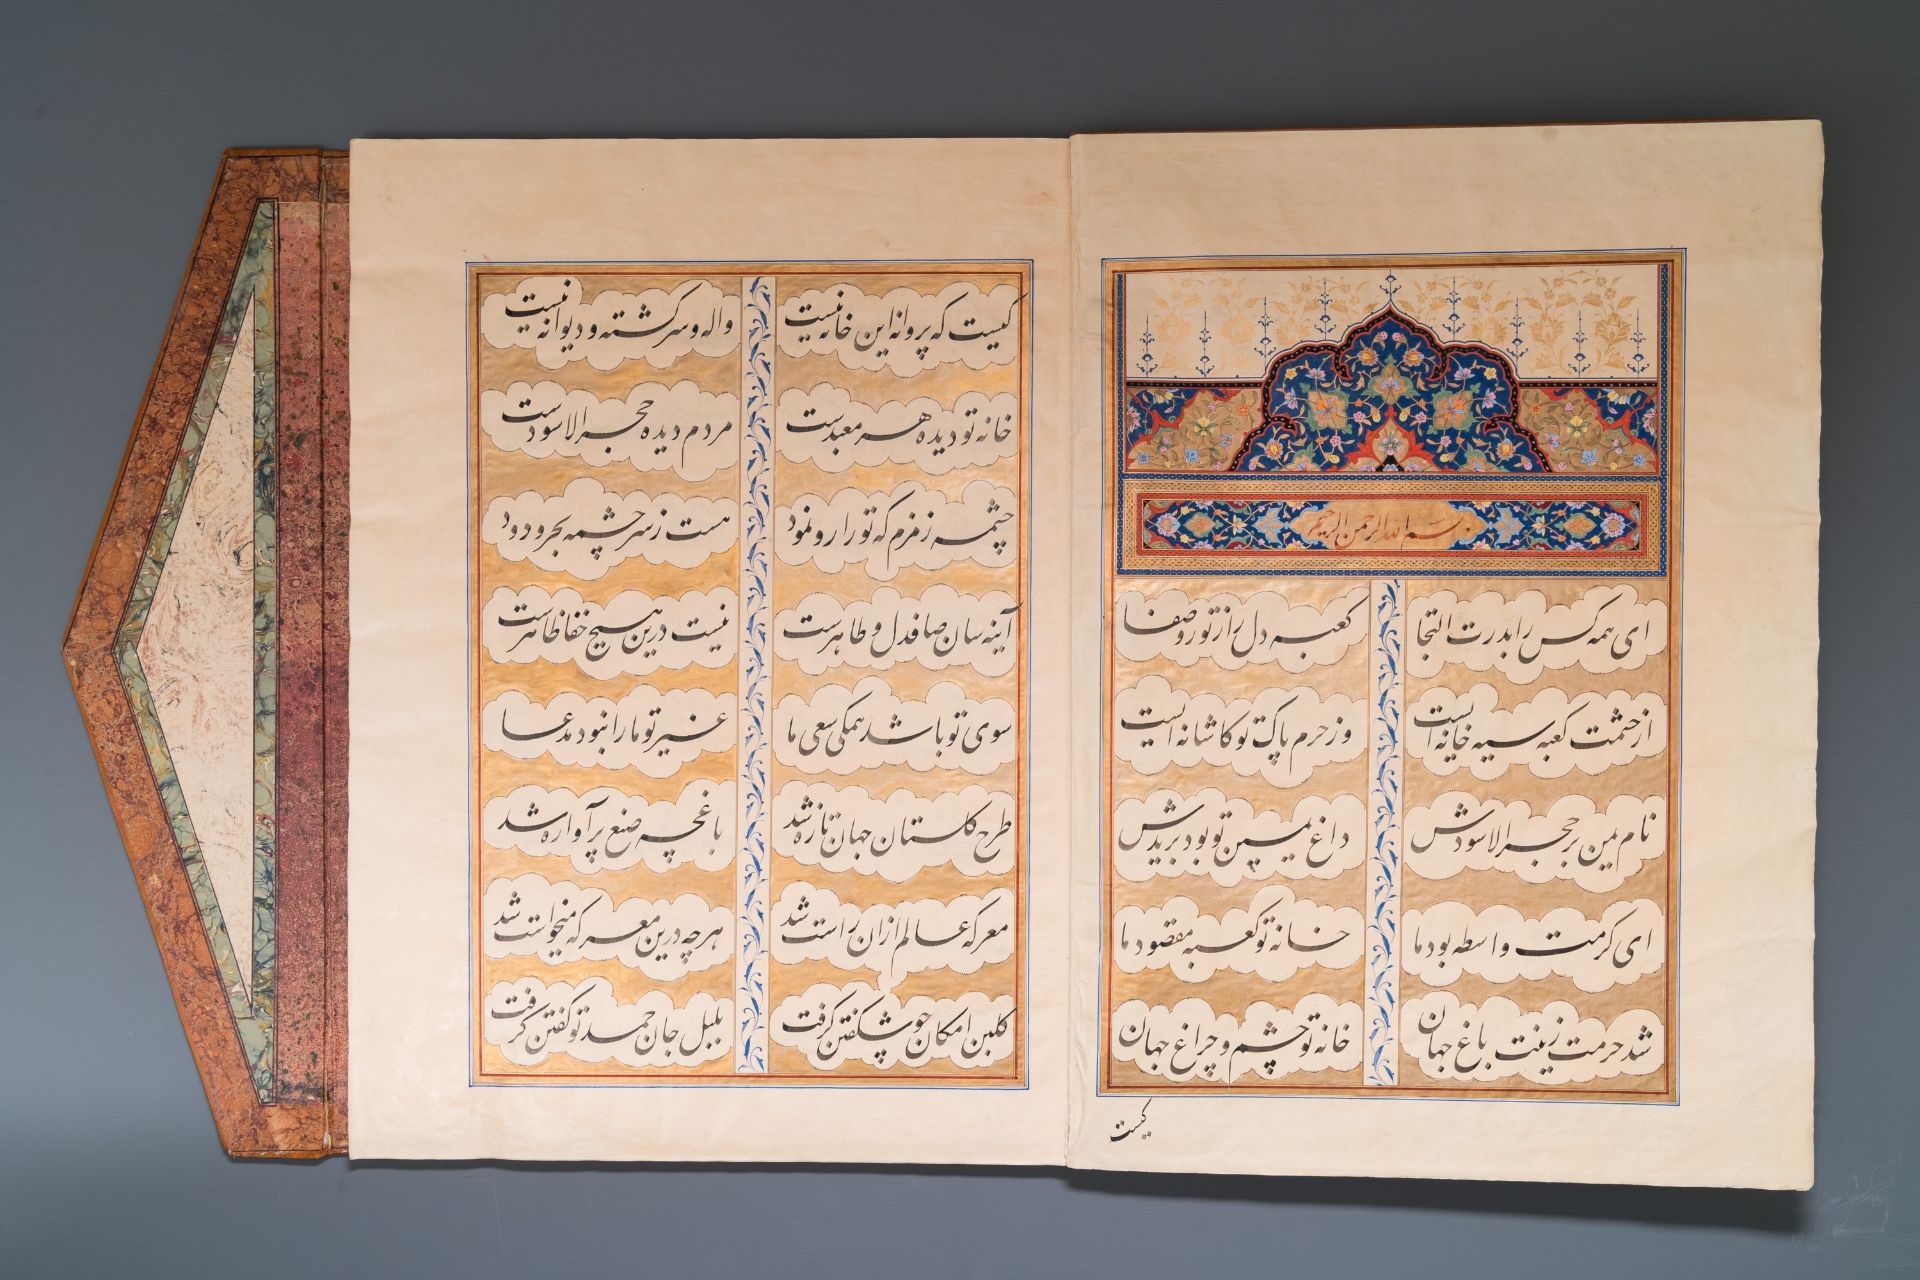 بسم الله الرحمن الرحیم
ای همه کس را بدرت التجا
کعبه دل را ز تو نور و صفا
از حشمت کعبه سیه خانه ایست
وز حرم پاک تو کاشانه ایست
نام یمین بر حجر الاسودش
داغ یمین تو بود بر یدش
ای کرمت واسطه بود ما
خانه تو کعبه مقصود ما
شد حرمت زینت باغ جهان
خانه تو چشم و چراغ جهان
کیست
کیست که پروانه این خانه نیست
واله و سرکشته و دیوانه نیست
خانه تو دیده هر معبدست
مردم دیده حجر الاسودست
چشمه زمزم که ترا رو نمود
هست ز سر چشمه بحر و دود
آینه سان صافدل و طاهرست
نیست درین هیچ خفا ظاهرست
سوی تو باشد همکی سعی ما
غیر تو ما را نبود مدعا
طرح کلستان جهان تازه شد
باغچه صنع پر آوازه شد
معرکه عالم ازان راست شد
هر چه درین معرکه میخواست شد
کلبن امکان چو شکفتن کرفت
بلبل جان حمد تو کفتن کرفت